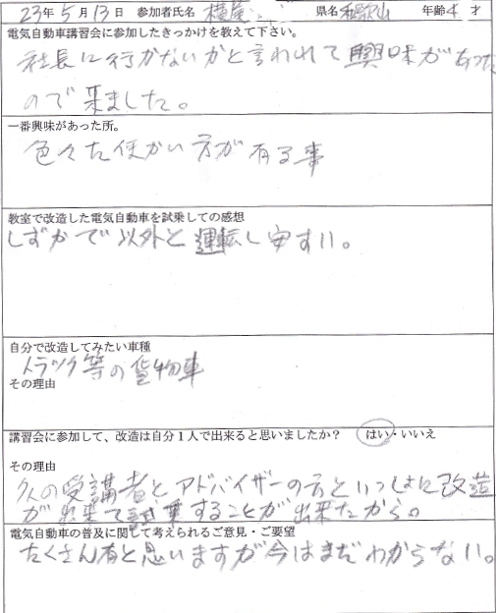 23年5月13日 参加者氏名 横 県名 和歌山 年齢4 才
電気自動車講習会に参加したきっかけを教えて下さい。
社長に行かないかと言われて興味があった
ので来ました。
一番興味があった所。
色々な使かい方が有る事
教室で改造した電気自動車を試乗しての感想
しずかで以外と運転し安すい。
自分で改造してみたい車種
トラック等の貨物車
その理由
講習会に参加して、改造は自分1人で出来ると思いましたか? はい・いいえ
その理由
の受講者とアドバイザーの方といっしょに改造
が出来て試乗することが出来たから。
電気自動車の普及に関して考えられるご意見・ご要望
たくさん有と思いますが今はまだわからない。